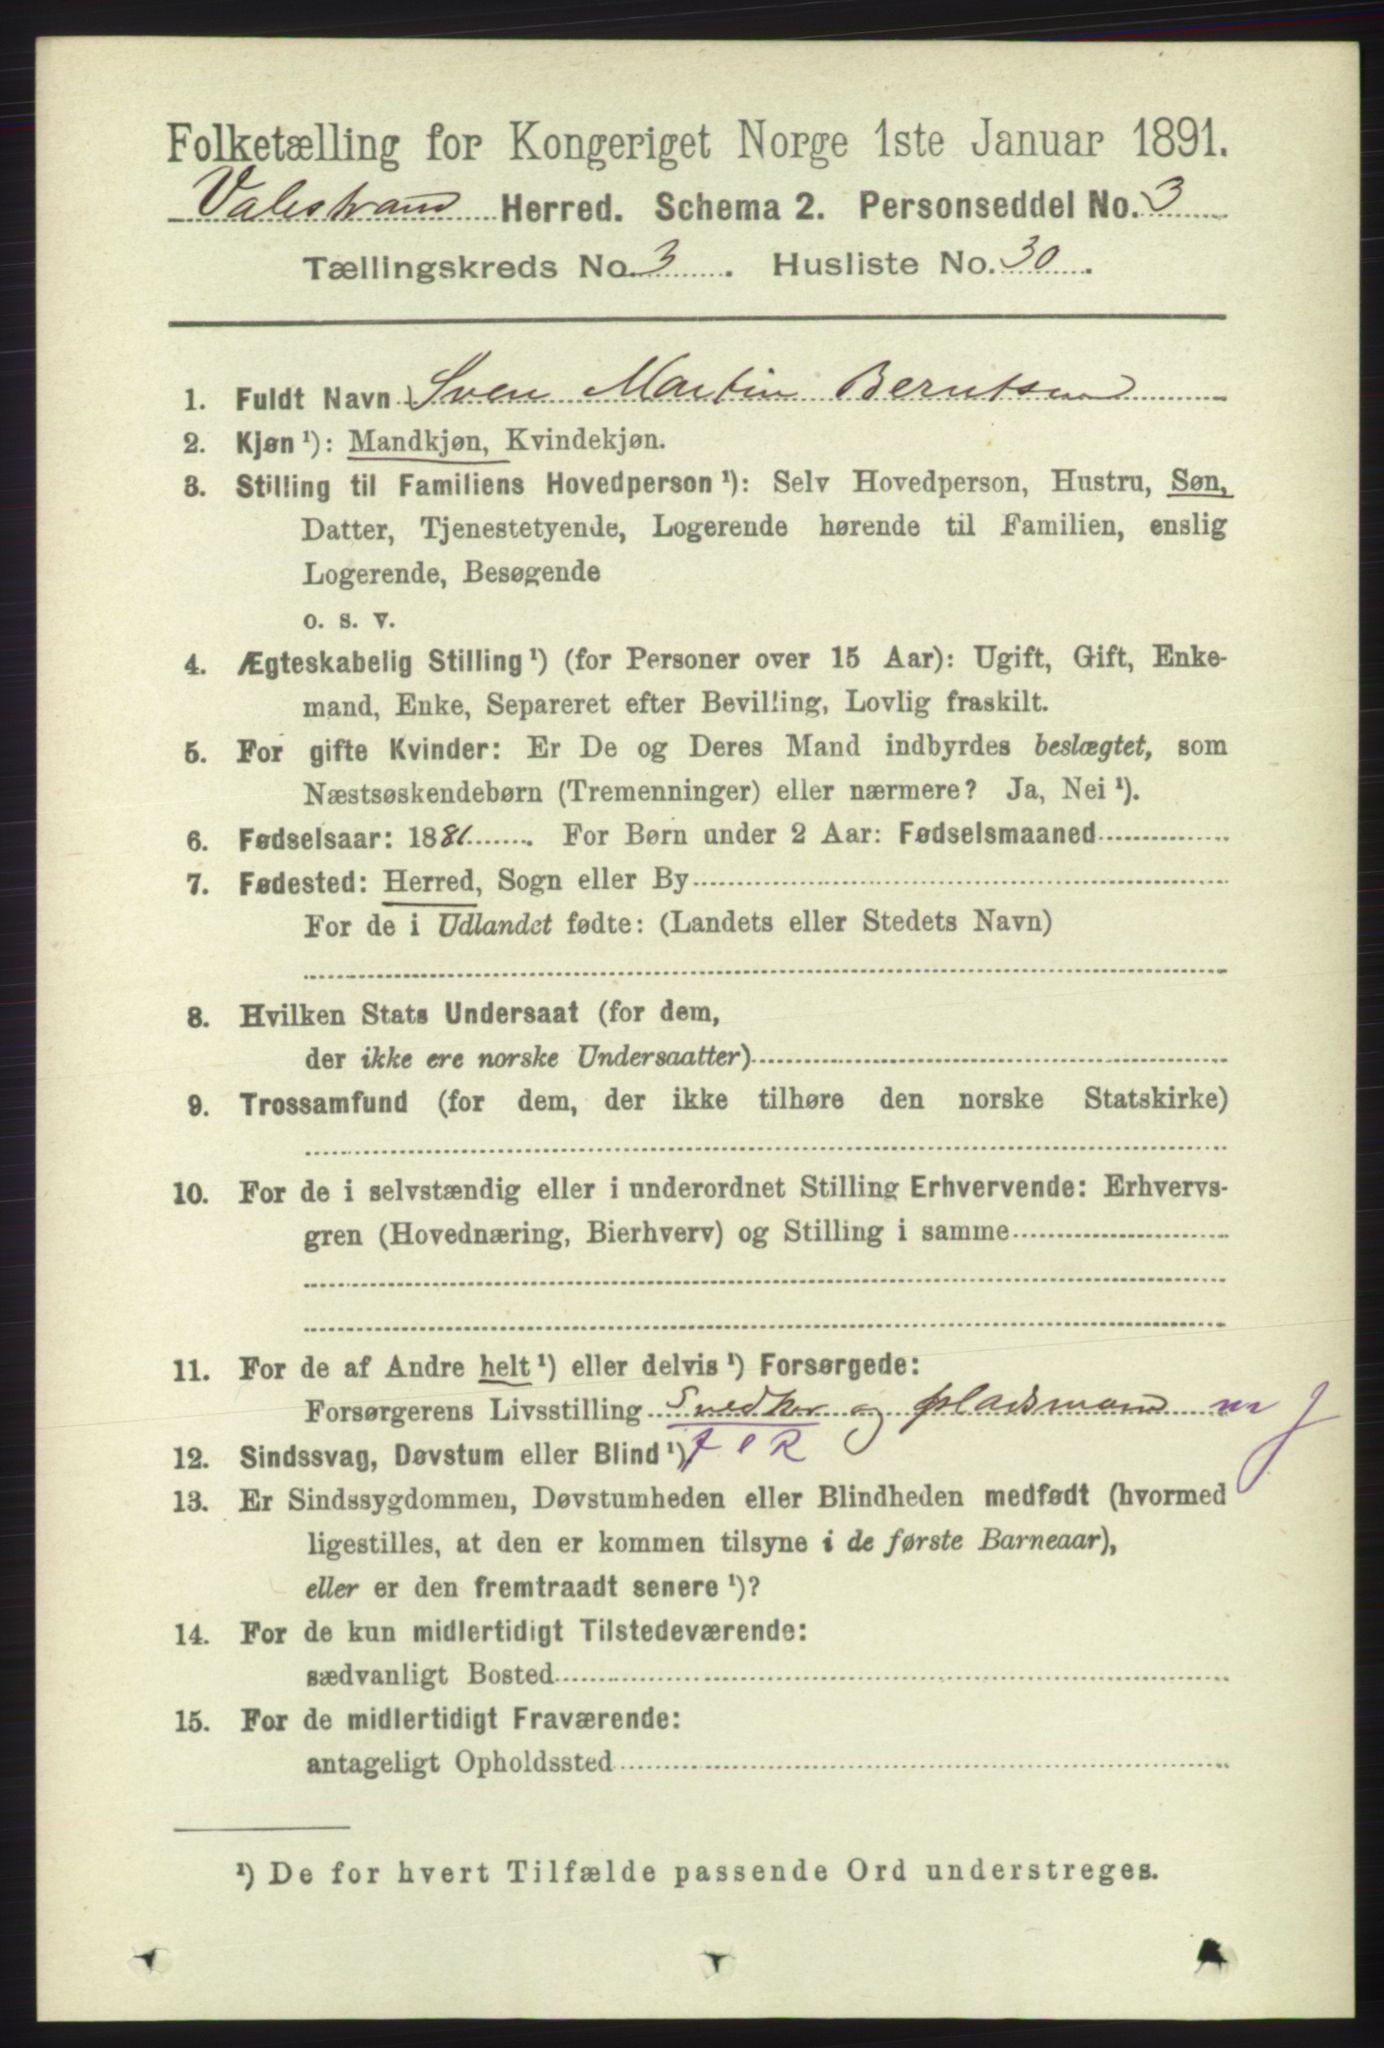 Folketælling for Kongeriget Norge 1ste Januar 1891.
Valestrand Herred. Schema 2. Personseddel No. 3
Tællingskreds No. 3. Husliste No. 30.
1. Fuldt Navn Sven Martin Berntsen
2. Kjøn ¹): Mandkjøn, Kvindekjøn.
3. Stilling til Familiens Hovedperson ¹): Selv Hovedperson, Hustru, Søn,
Datter, Tjenestetyende, Logerende hørende til Familien, enslig
Logerende, Besøgende
o. s. v.
4. Ægteskabelig Stilling ¹) (for Personer over 15 Aar): Ugift, Gift, Enke-
mand, Enke, Separeret efter Bevilling, Lovlig fraskilt.
5. For gifte Kvinder: Er De og Deres Mand indbyrdes beslægtet, som
Næstsøskendebørn (Tremenninger) eller nærmere? Ja, Nei ¹).
6. Fødselsaar: 1881. For Børn under 2 Aar: Fødselsmaaned
7. Fødested: Herred, Sogn eller By
For de i Udlandet fødte: (Landets eller Stedets Navn)
8. Hvilken Stats Undersaat (for dem,
der ikke ere norske Undersaatter)
9. Trossamfund (for dem, der ikke tilhøre den norske Statskirke)
10. For de i selvstændig eller i underordnet Stilling Erhvervende: Erhvervs-
gren (Hovednæring, Bierhverv) og Stilling i samme
11. For de af Andre helt ¹) eller delvis ¹) Forsørgede:
Forsørgerens Livsstilling Snedker og pladsmand m J
12. Sindssvag, Døvstum eller Blind ¹)
13. Er Sindssygdommen, Døvstumheden eller Blindheden medfødt (hvormed
ligestilles, at den er kommen tilsyne i de første Barneaar),
eller er den fremtraadt senere ¹)?
14. For de kun midlertidigt Tilstedeværende:
sædvanligt Bosted
15. For de midlertidigt Fraværende:
antageligt Opholdssted
¹) De for hvert Tilfælde passende Ord understreges.